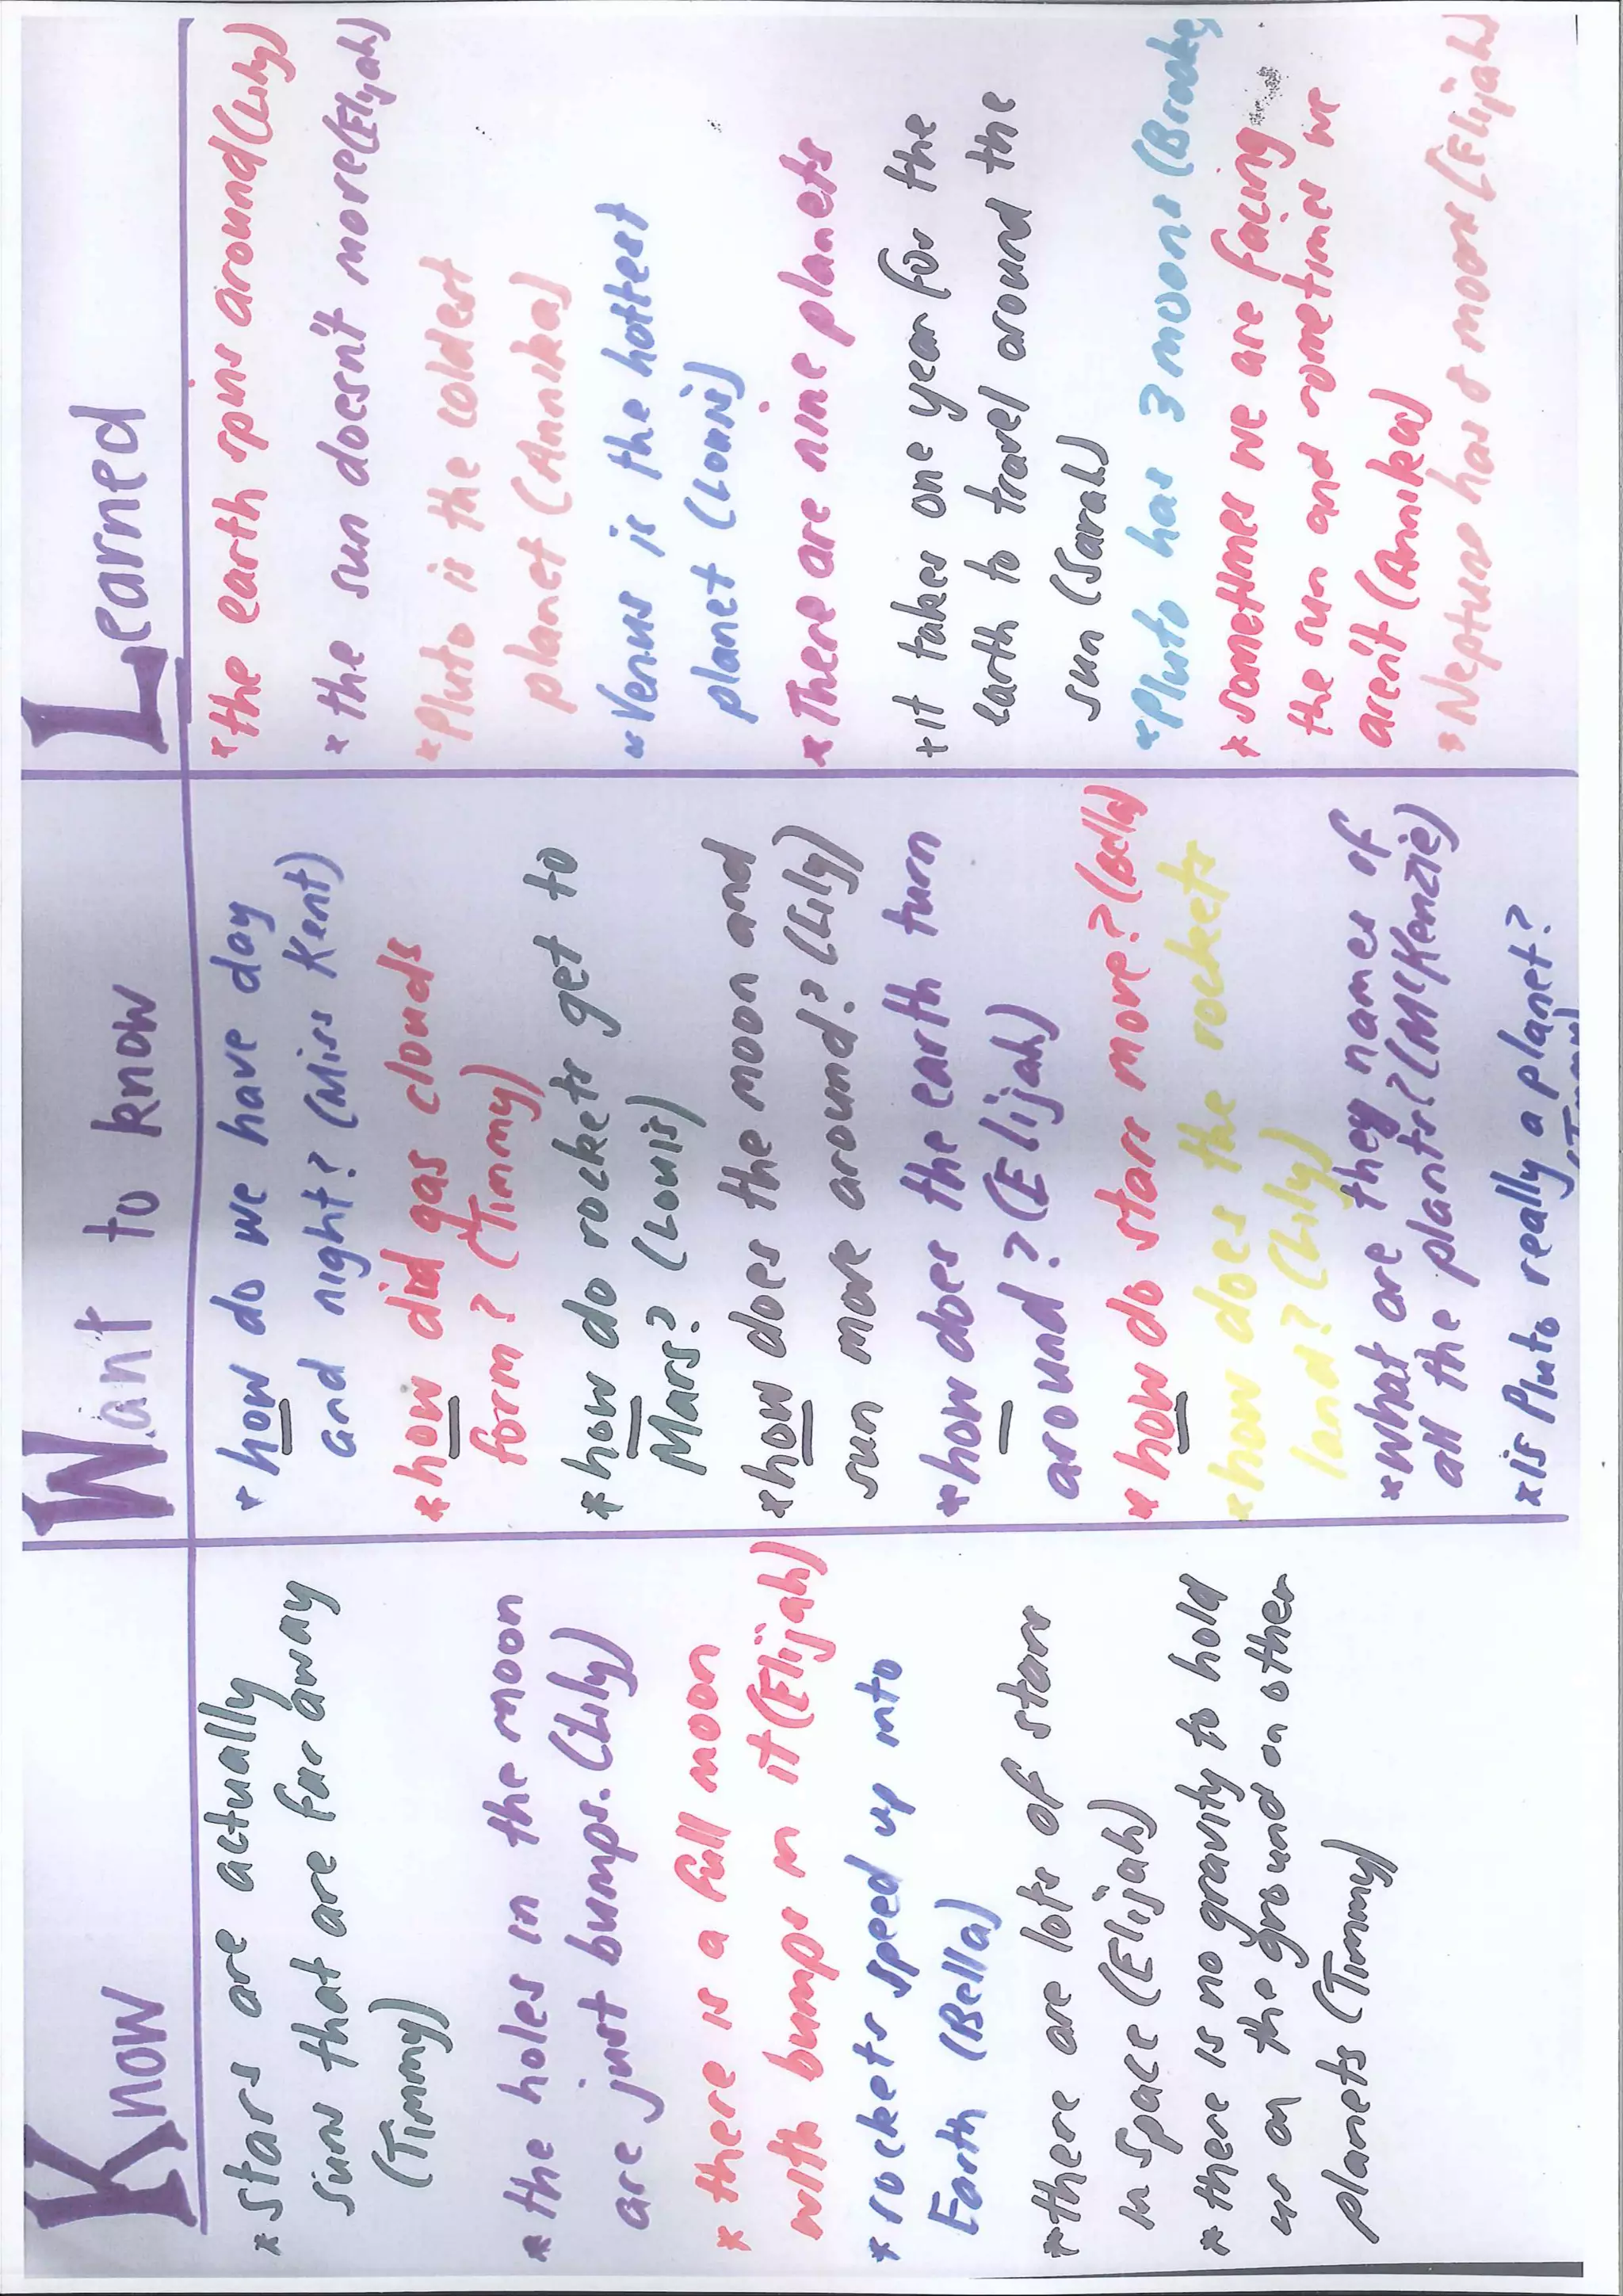 Know
* stars are actually
suns that are far away
(Timmy)
* the holes in the moon
are just bumps. (Lily)
* there is a full moon
with bumps in it (Elijah)
* rockets speed up into
Earth (Bella)
* there are lots of stars
in space (Elijah)
* there is no gravity to hold
us on the ground on other
planets (Timmy)
Want to know
* how do we have day
and night? (Miss Kent)
* how did gas clouds
form? (Timmy)
* how do rockets get to
Mars? (Louis)
* how does the moon and
sun move around? (Lily)
* how does the earth turn
around? (Elijah)
* how do stars move? (Bella)
* how does the rockets
land? (Lily)
* what are they names of
all the plants? (McKenzie)
* is Pluto really a planet?
Learned
* the earth spins around (Lily)
* the sun doesn't move (Elijah)
* Pluto is the coldest
planet (Annika)
* Venus is the hottest
planet (Louis)
* There are nine planets
* it takes one year for the
earth to travel around the
sun (Sarah)
* Pluto has 3 moons (Brooke
* sometimes we are facing
the sun and sometimes we
aren't (Annika)
* Neptune has 8 moons (Elijah)